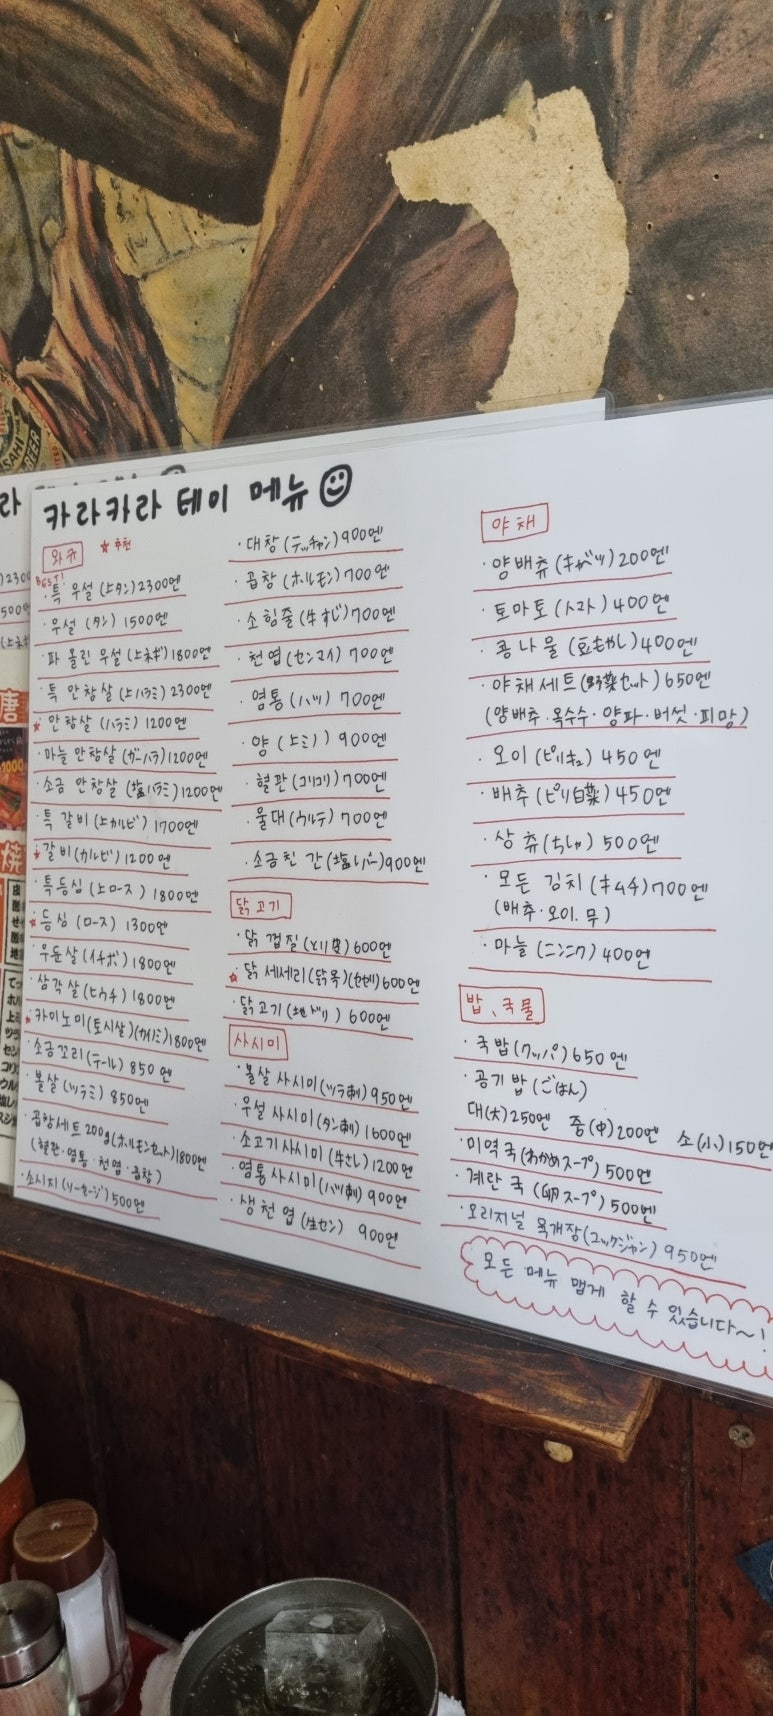 카라카라 테이 메뉴
와규 ★ 추천
BEST!
· 특 우설 (上タン) 2300엔
· 우설 (タン) 1500엔
· 파 올린 우설 (上ネギ) 1800엔
· 특 안창살 (上ハラミ) 2300엔
★ 안창살 (ハラミ) 1200엔
· 마늘 안창살 (ガーハラ) 1200엔
· 소금 안창살 (塩ハラミ) 1200엔
· 특 갈비 (上カルビ) 1700엔
★ 갈비 (カルビ) 1200엔
· 특등심 (上ロース) 1800엔
★ 등심 (ロース) 1300엔
· 우둔살 (イチボ) 1800엔
· 삼각살 (ヒウチ) 1800엔
★ 카이노미 (토시살) (カイノミ) 1800엔
· 소금꼬리 (テール) 850엔
· 볼살 (ツラミ) 850엔
· 곱창세트 200g (ホルモンセット) 1800엔
(혈관·염통·천엽·곱창)
· 소시지 (ソーセージ) 500엔
· 대창 (テッチャン) 900엔
· 곱창 (ホルモン) 700엔
· 소힘줄 (牛すじ) 700엔
· 천엽 (センマイ) 700엔
· 염통 (ハツ) 700엔
· 양 (上ミノ) 900엔
· 혈관 (コリコリ) 700엔
· 울대 (ウルテ) 700엔
· 소금친 간 (塩レバー) 900엔
닭고기
· 닭 껍질 (とり皮) 600엔
★ 닭 세세리 (닭 목) (せせり) 600엔
· 닭고기 (地ドリ) 600엔
사시미
· 볼살 사시미 (ツラ刺) 950엔
· 우설 사시미 (タン刺) 1600엔
· 소고기 사시미 (牛さし) 1200엔
· 염통 사시미 (ハツ刺) 900엔
· 생 천엽 (生セン) 900엔
야채
· 양배츄 (キャベツ) 200엔
· 토마토 (トマト) 400엔
· 콩나물 (豆もやし) 400엔
· 야채세트 (野菜セット) 650엔
(양배추·옥수수·양파·버섯·피망)
· 오이 (ピリキュ) 450엔
· 배추 (ピリ白菜) 450엔
· 상츄 (ちしゃ) 500엔
· 모든 김치 (キムチ) 700엔
(배추·오이.무)
· 마늘 (ニンニク) 400엔
밥、국물
· 국밥 (クッパ) 650엔
· 공기밥 (ごはん)
대(大) 250엔 중(中) 200엔 소(小) 150엔
· 미역국 (わかめスープ) 500엔
· 계란국 (卵スープ) 500엔
· 오리지널 육개장 (ユッケジャン) 950엔
모든 메뉴 맵게 할 수 있습니다~!